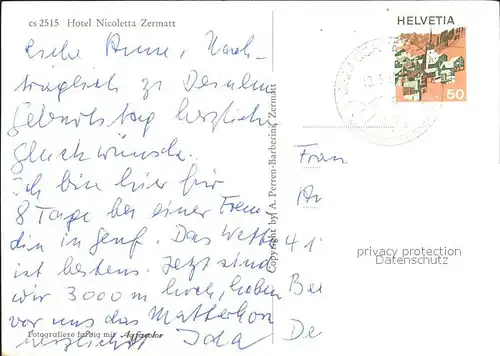 cs 2515 Hotel Nicoletta Zermatt
HELVETIA
50
Liebe Anne, Nach-
träglich zu Deinem
Geburtstag herzliche
Glückwünsche.
Ich bin hier für
8 Tage bei einer Freun
din in Genf. Das Wetter
ist bestens. Jetzt sind
wir 3000 m hoch, haben
vor uns das Matterhorn
herzlichst Ida
Copyright by A. Perren-Barberini, Zermatt
Fotografiere farbig mit Agfacolor
Frau
41
De
privacy protection
Datenschutz